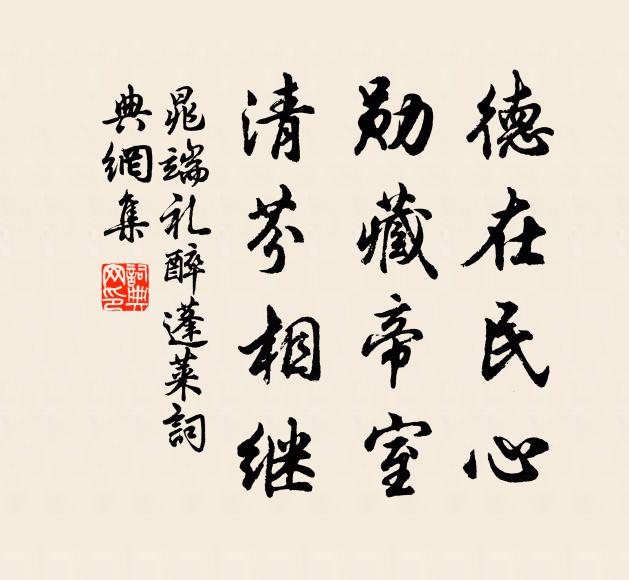 德在民心
勋藏帝室
清芬相继
晁端礼醉蓬莱詞
典網集
詞典網印